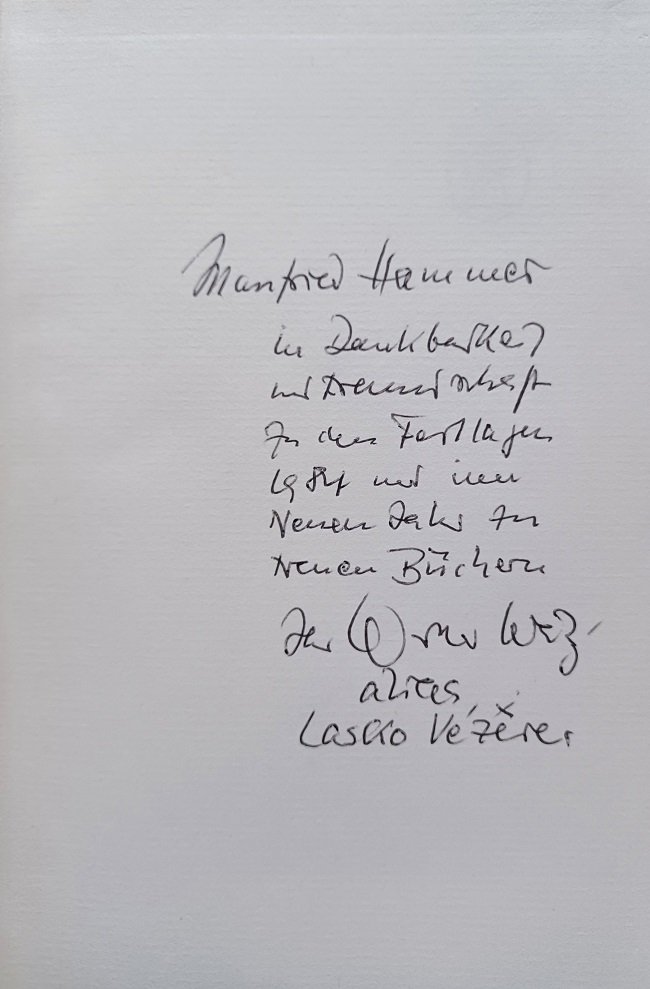 Manfried Hammer
in Dankbarkeit
und Freundschaft
zu den Festtagen
und zum
Neuen Jahr zu
neuen Büchern
Ihr
alias
Laszlo Vézère.